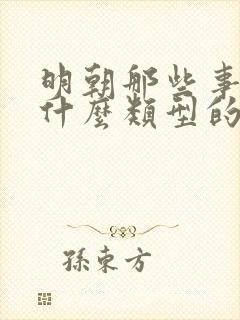 明朝那些事
什麼類型的
孫東方